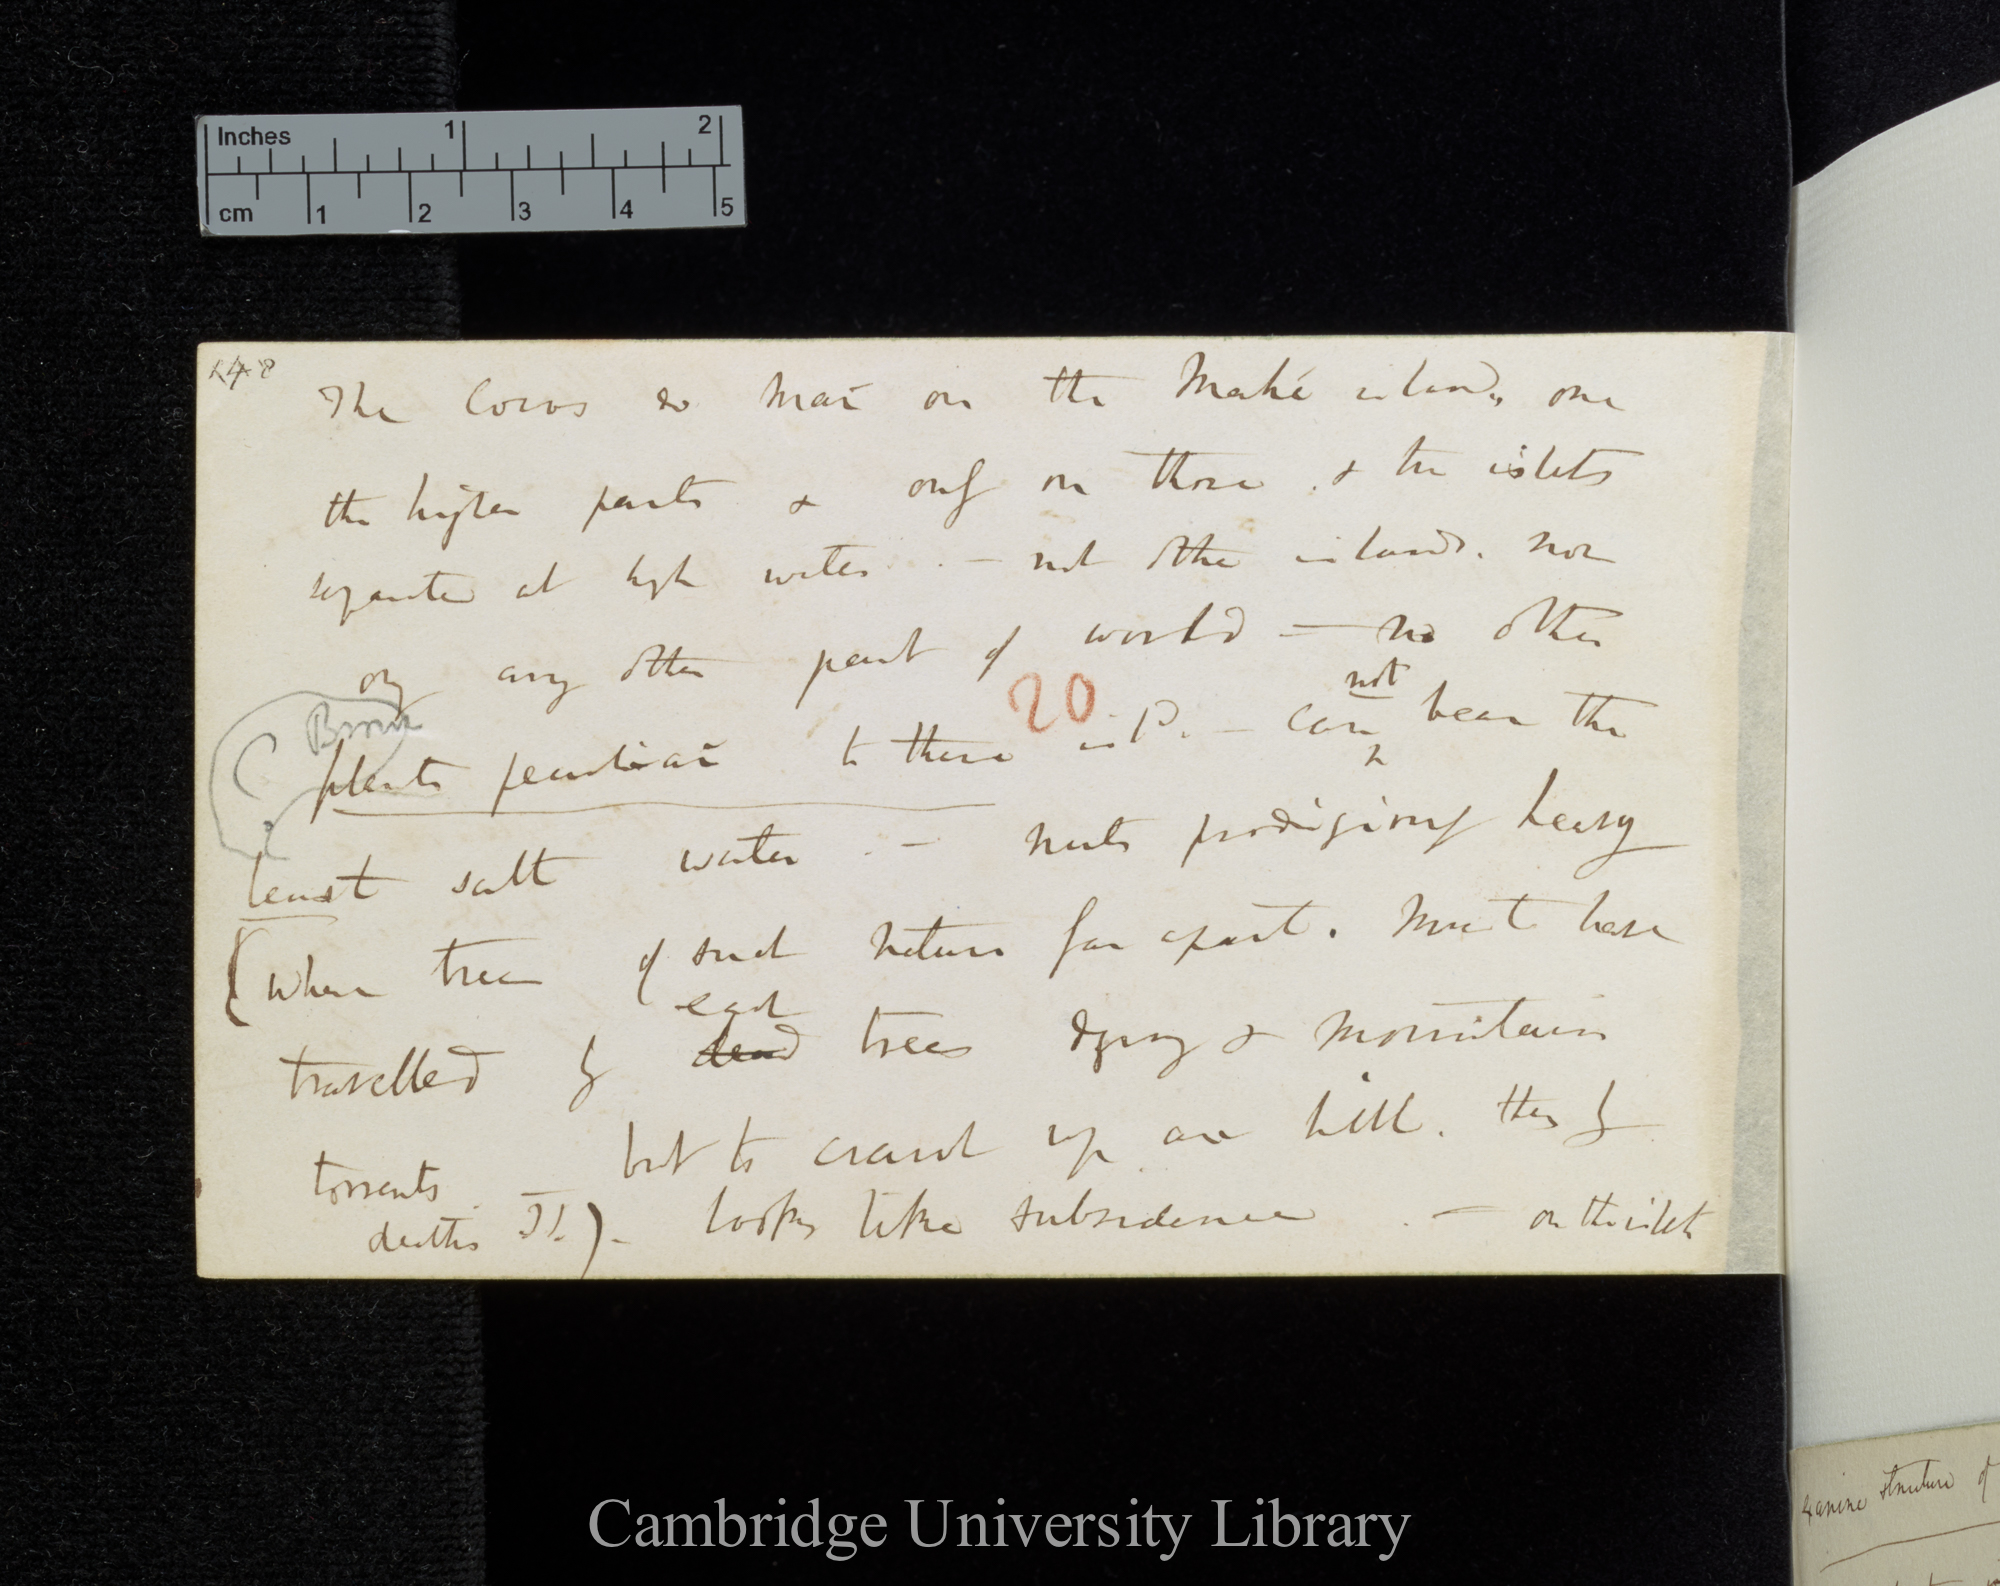 Inches 1 2
cm 1 2 3 4 5
248
The Cocos do mar on the Mahé islands, one
the higher parts & only on those & the islets
separated at high water. — not other islands. nor
on any other part of world — no other
20
not
Brown
plants peculiar to these isd. — can bear the
least salt water. — nuts prodigiously heavy
(when trees of such nature far apart. Must have
each
travelled by dead trees dying & mountain
torrents but to crawl up an hill. thus by
deaths !!). looks like subsidence. — on the islets
structure of
Cambridge University Library